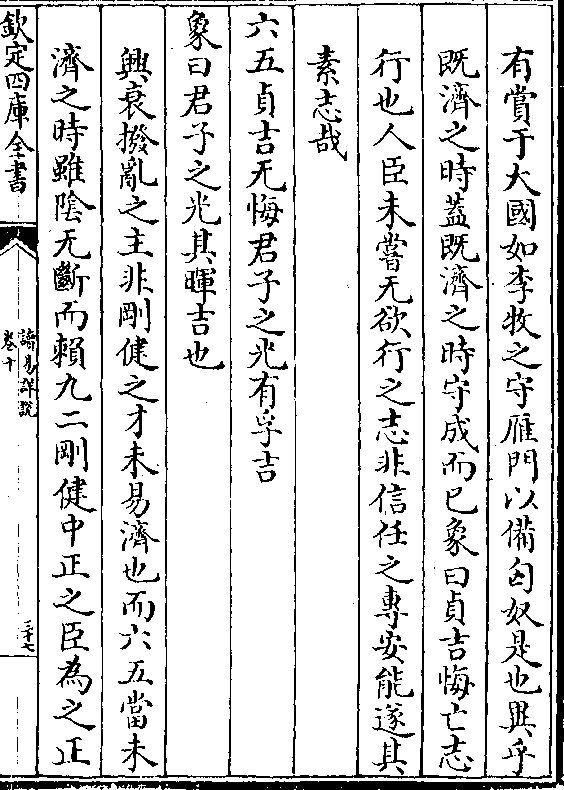 有賞于大國如李牧之守雁門以備匈奴是也異乎
既濟之時蓋既濟之時守成而已象曰貞吉悔亡志
行也人臣未嘗无欲行之志非信任之專安能遂其
素志哉
六五貞吉无悔君子之光有孚吉
象曰君子之光其暉吉也
興衰撥亂之主非剛健之才未易濟也而六五當未
濟之時雖陰无斷而賴九二剛健中正之臣為之正
欽定四庫全書
讀易詳說
卷十
三十七